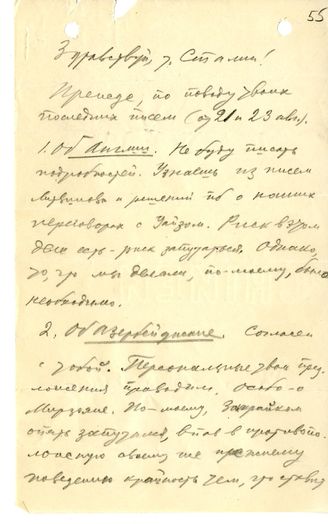 55
Здравствуй, т. Сталин!
Прежде, по поводу твоих
последних писем (от 21 и 23 авг).
1. Об Англии. Не буду писать
подробностей. Узнаешь из писем
Литвинова и решений пб о наших
переговорах с Уайзом. Риск в этом
деле есть – риск запутаться. Однако,
то, что мы делали, по-моему, было
необходимо.
2. Об Азербейджане. Согласен
с тобой. Персональные твои пред
ложения проводим. Особо – о
Мирзьяне. По-моему, Заккрайком
опять запутался, впав в противопо
ложную своему же прежнему
поведению крайность тем, что ставит